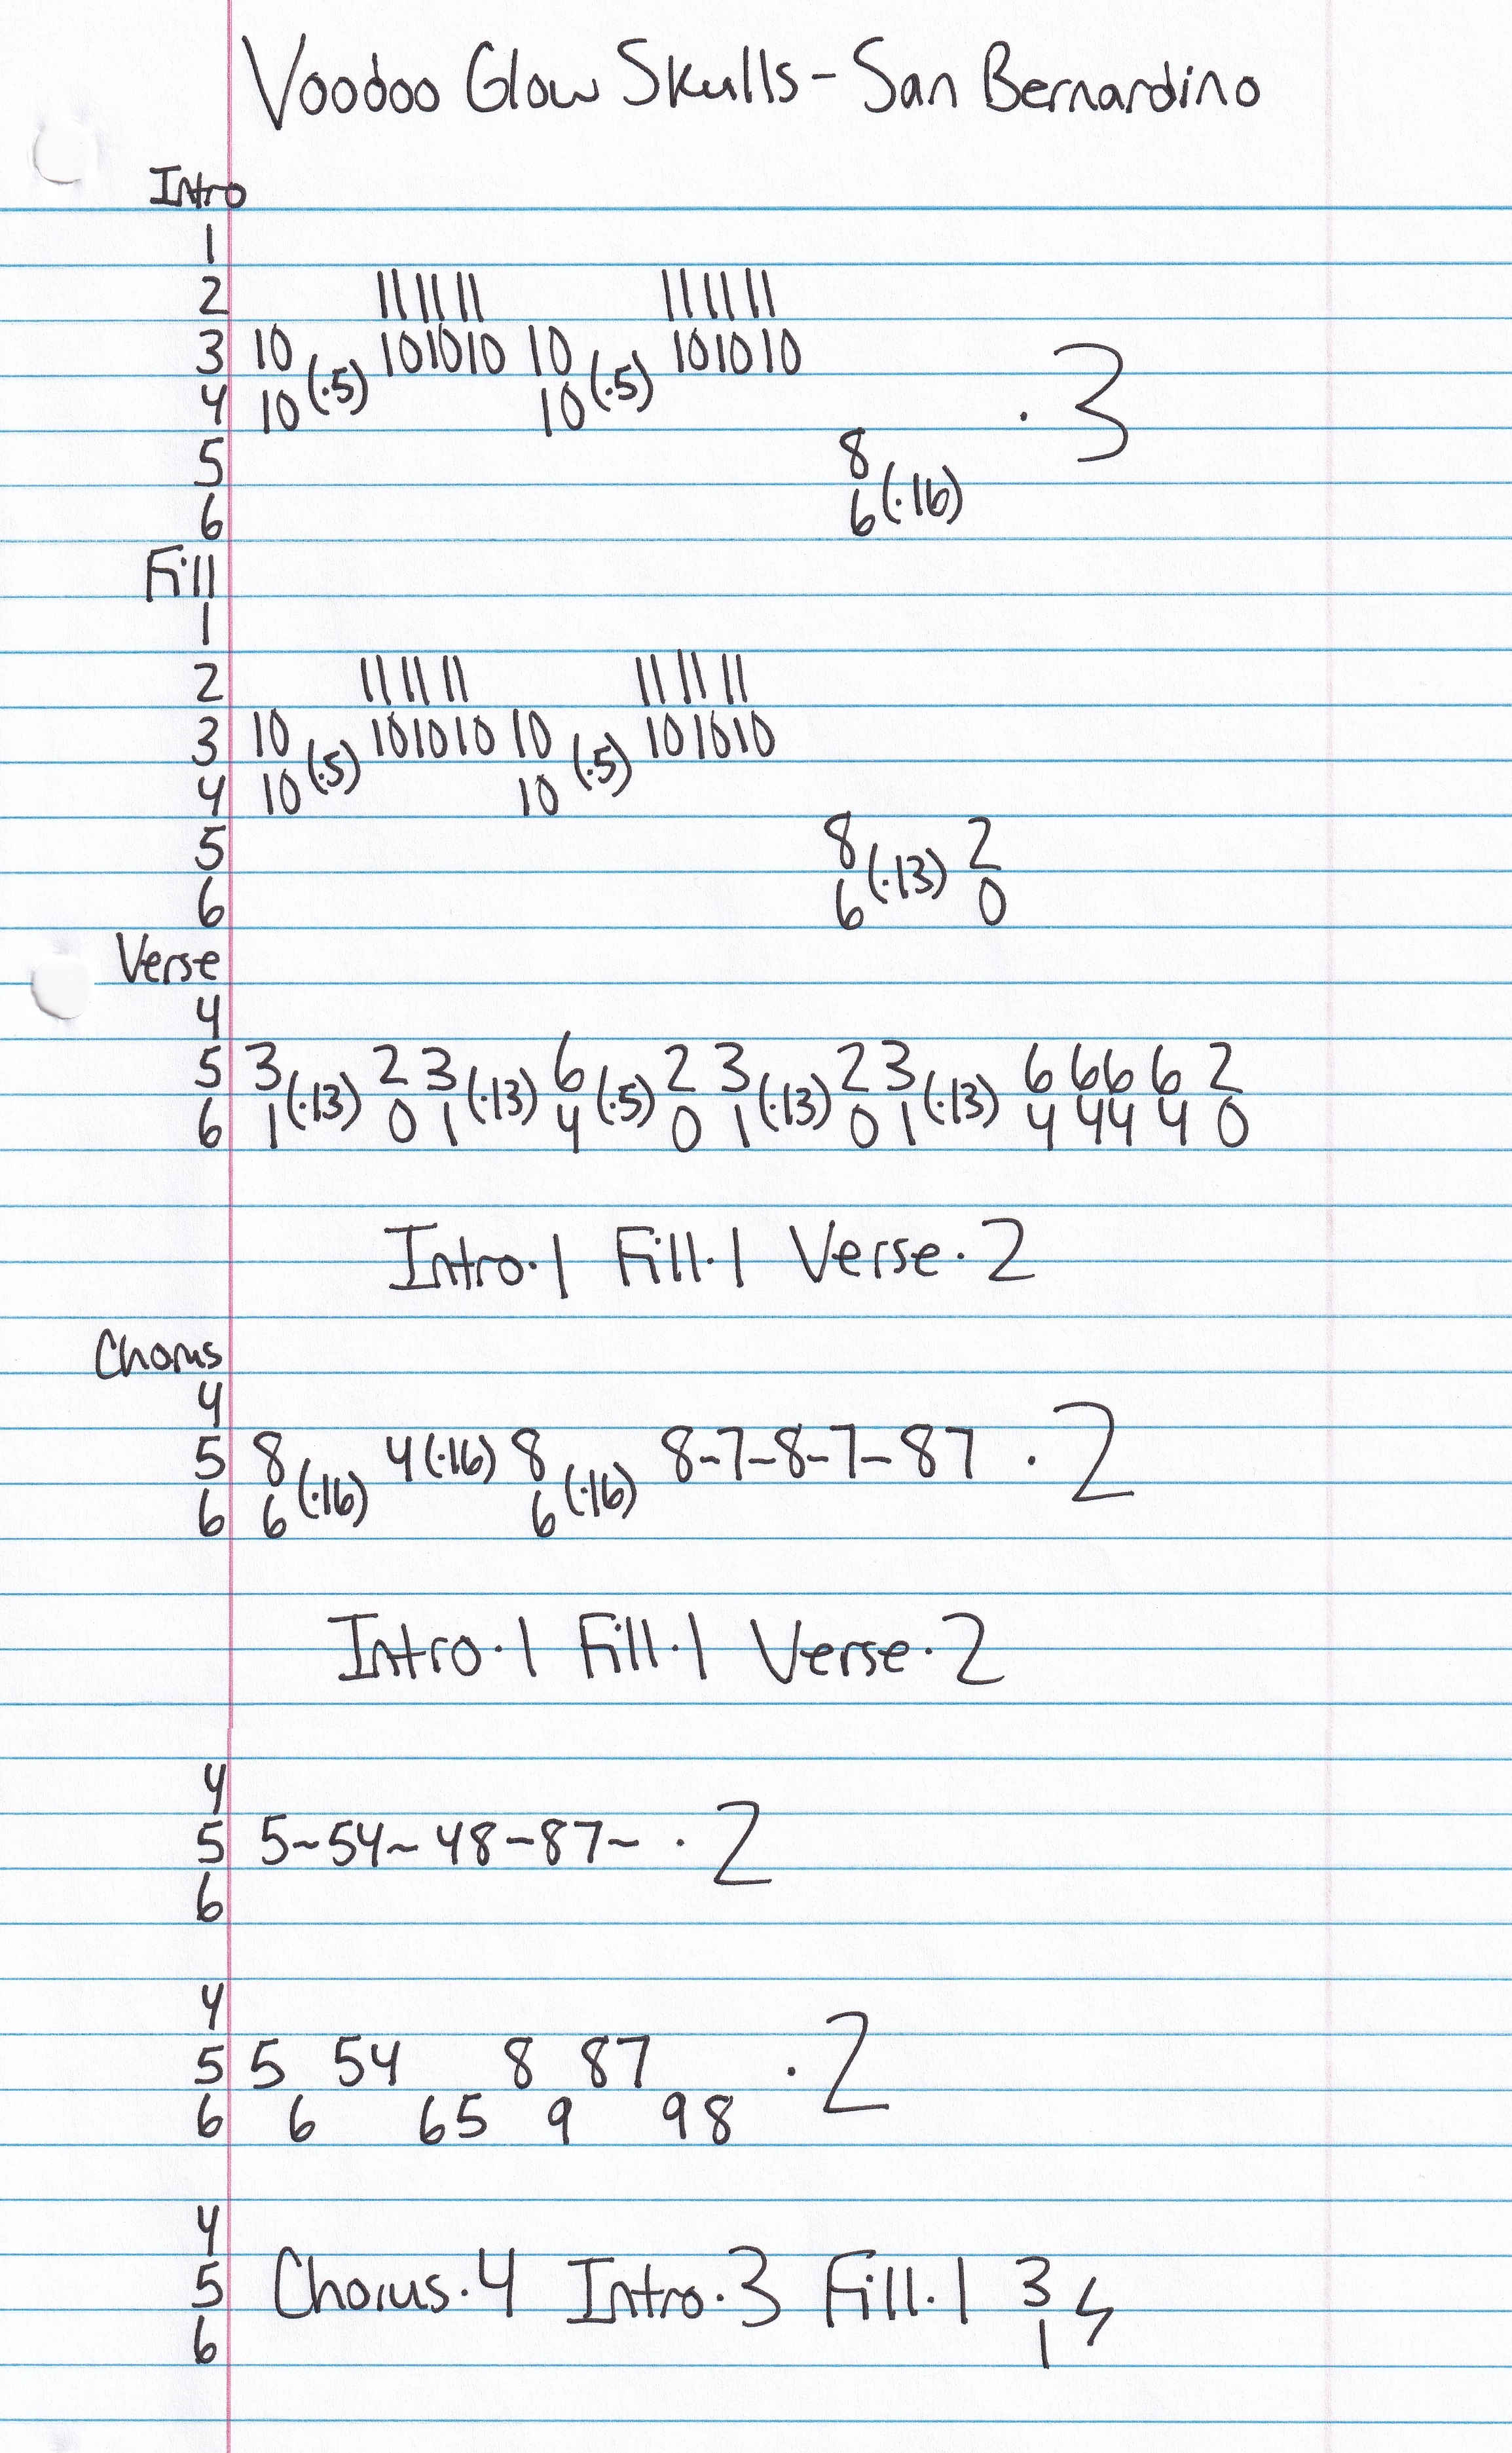 Voodoo Glow Skulls - San Bernardino
Intro
1
2 11 11 11 11 11 11
3 10 10 10 10 10 10 10 10
4 10 (·5) 10 (·5) · 3
5 8
6 6 (·16)
Fill
1
2 11 11 11 11 11 11
3 10 10 10 10 10 10 10 10
4 10 (·5) 10 (·5)
5 8 (·13) 2
6 6 0
Verse
4
5 3 (·13) 2 3 (·13) 6 (·5) 2 3 (·13) 2 3 (·13) 6 6 6 6 2
6 1 0 1 4 0 1 0 1 4 4 4 4 0
Intro·1 Fill·1 Verse·2
Chorus
4
5 8 4 (·16) 8 8~7~8~7~87 · 2
6 6 (·16) 6 (·16)
Intro·1 Fill·1 Verse·2
4
5 5~54~48~87~ · 2
6
4
5 5 54 8 87 · 2
6 6 65 9 98
4
5 Chorus·4 Intro·3 Fill·1 3
6 1